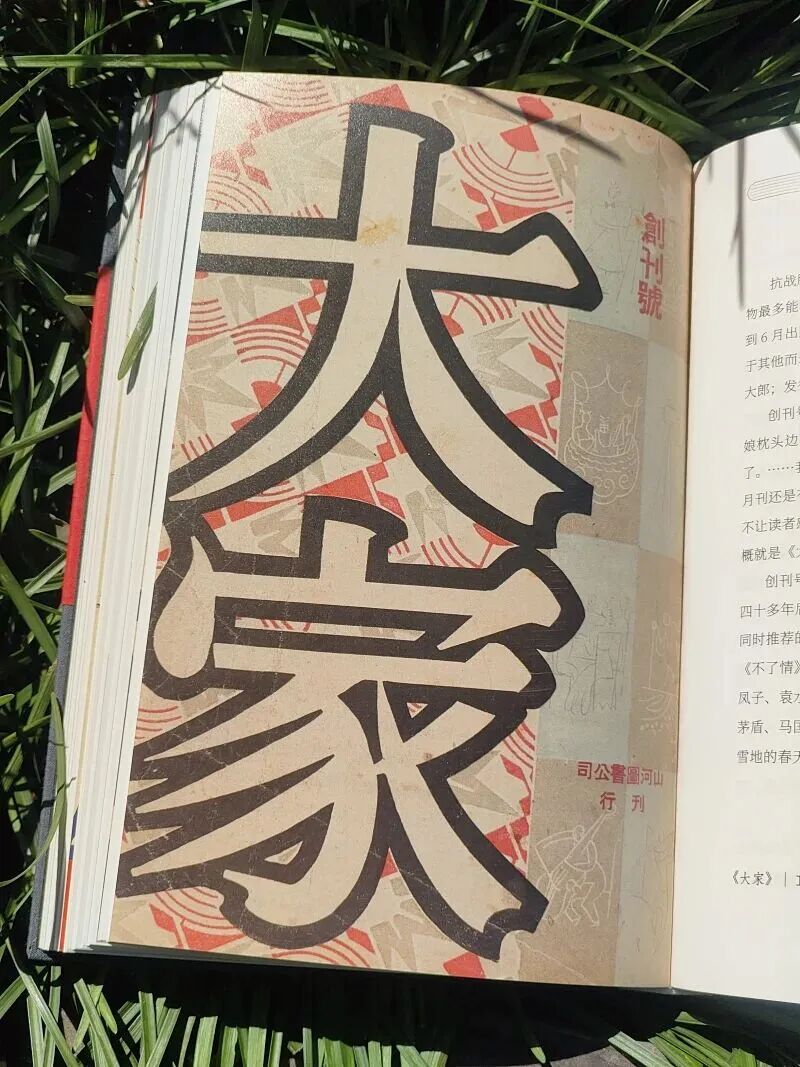 大家
創刊號
山河圖書公司
刊行
抗战
物最多能
到6月出
于其他而
大郎；发
创刊号
娘枕头边
了。……
月刊还是
不让读者
概就是《
创刊号
四十多年后
同时推荐的
《不了情》
凤子、袁水
茅盾、马国
雪地的春天
《大家》|